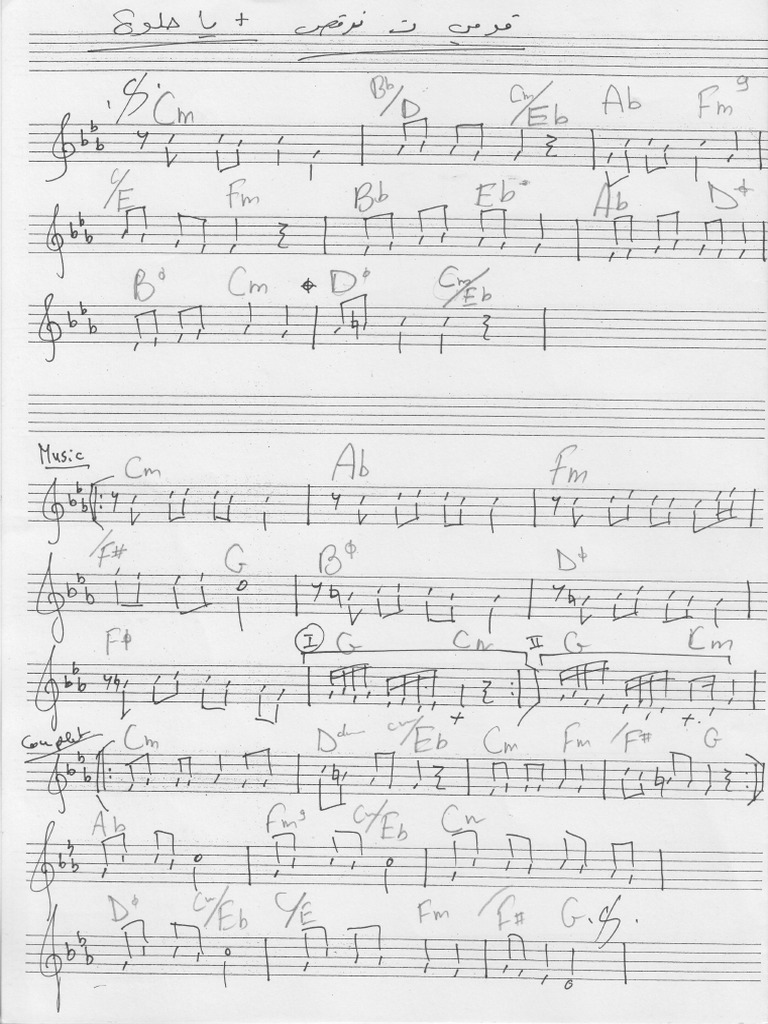 قومي ت نرقص + يا حلوة
Cm Bb/D Cm/Eb Ab Fm9
C/E Fm Bb Eb Ab Dø
Bø Cm Dø Cm/Eb
Music
Cm Ab Fm
/F# G Bø Dø
Fø I G Cm II G Cm
Couplet
Cm Ddim Cm/Eb Cm Fm /F# G
Ab Fm9 Cm/Eb Cm
Dø Cm/Eb C/E Fm /F# G